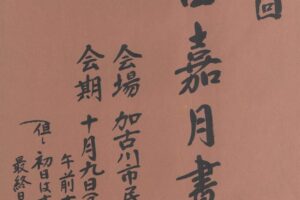 回
嘉月書
会場 加古川市民
会期 十月九日
午前
但し初日は
最終日